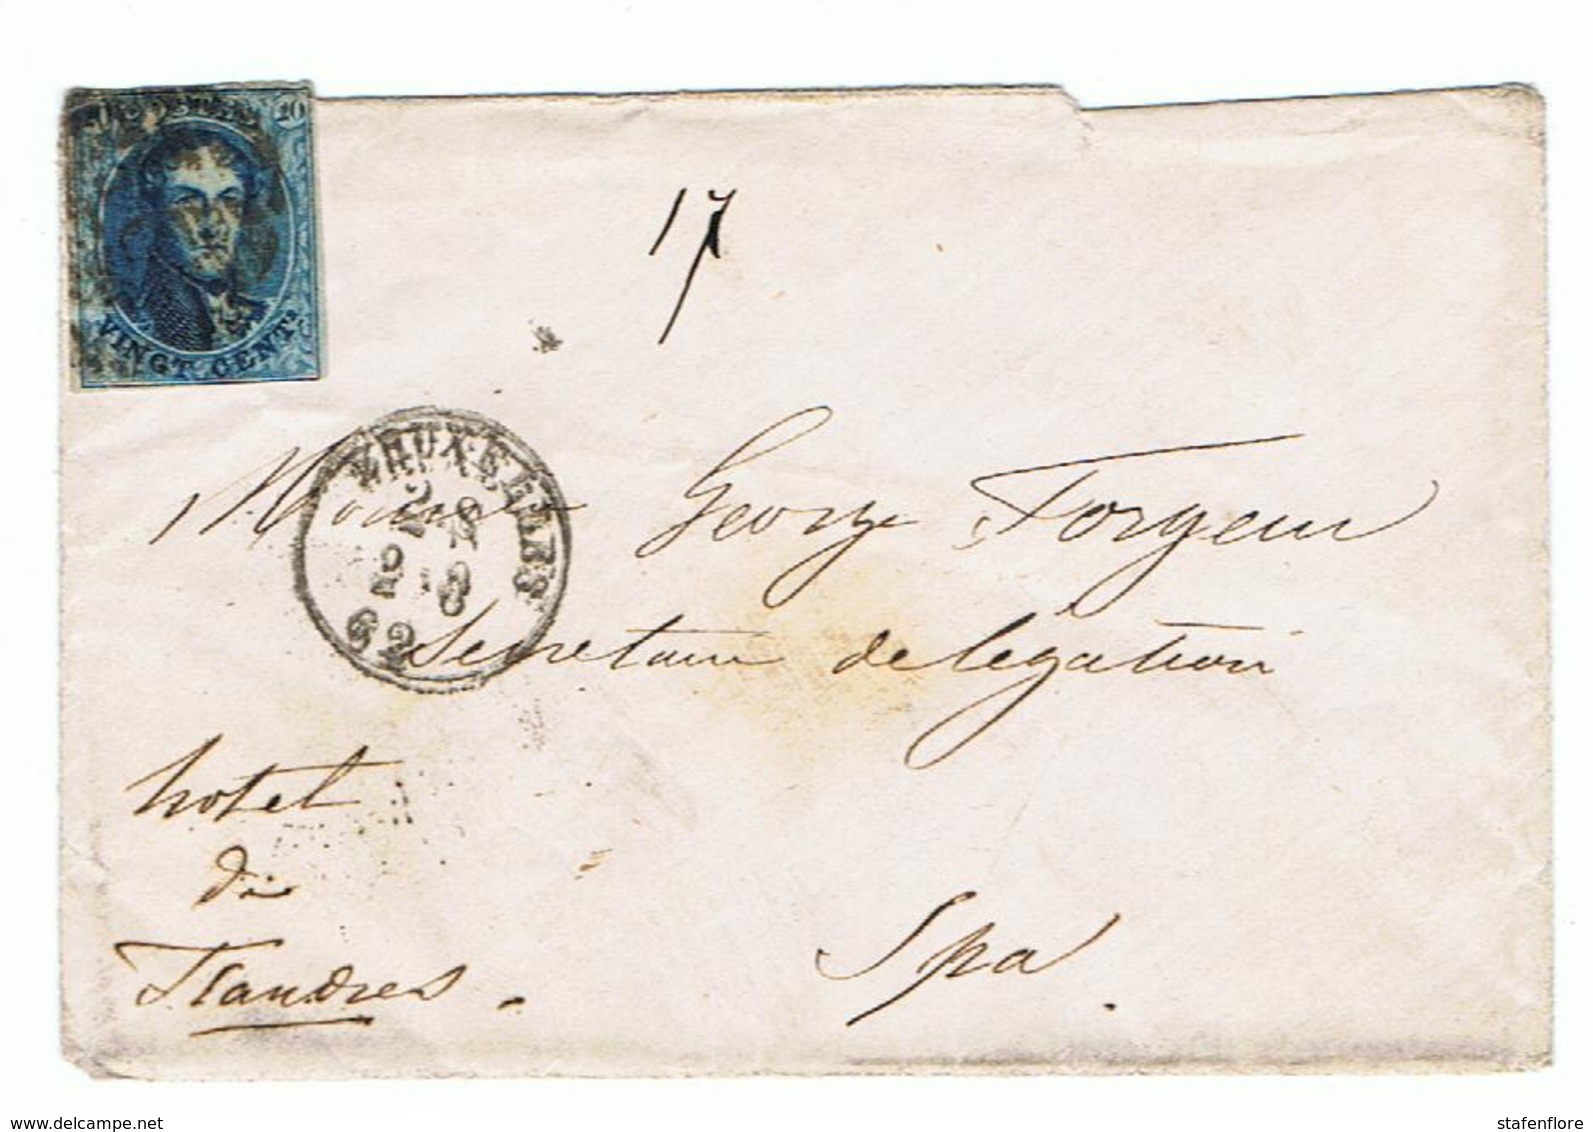 20
VINGT CENTS
17
BRUXELLES
28
8
62
Monsieur George Forgeur
Secretaire de legation
hotel
de
Flandres.
Spa.
www.delcampe.net
stafenflore